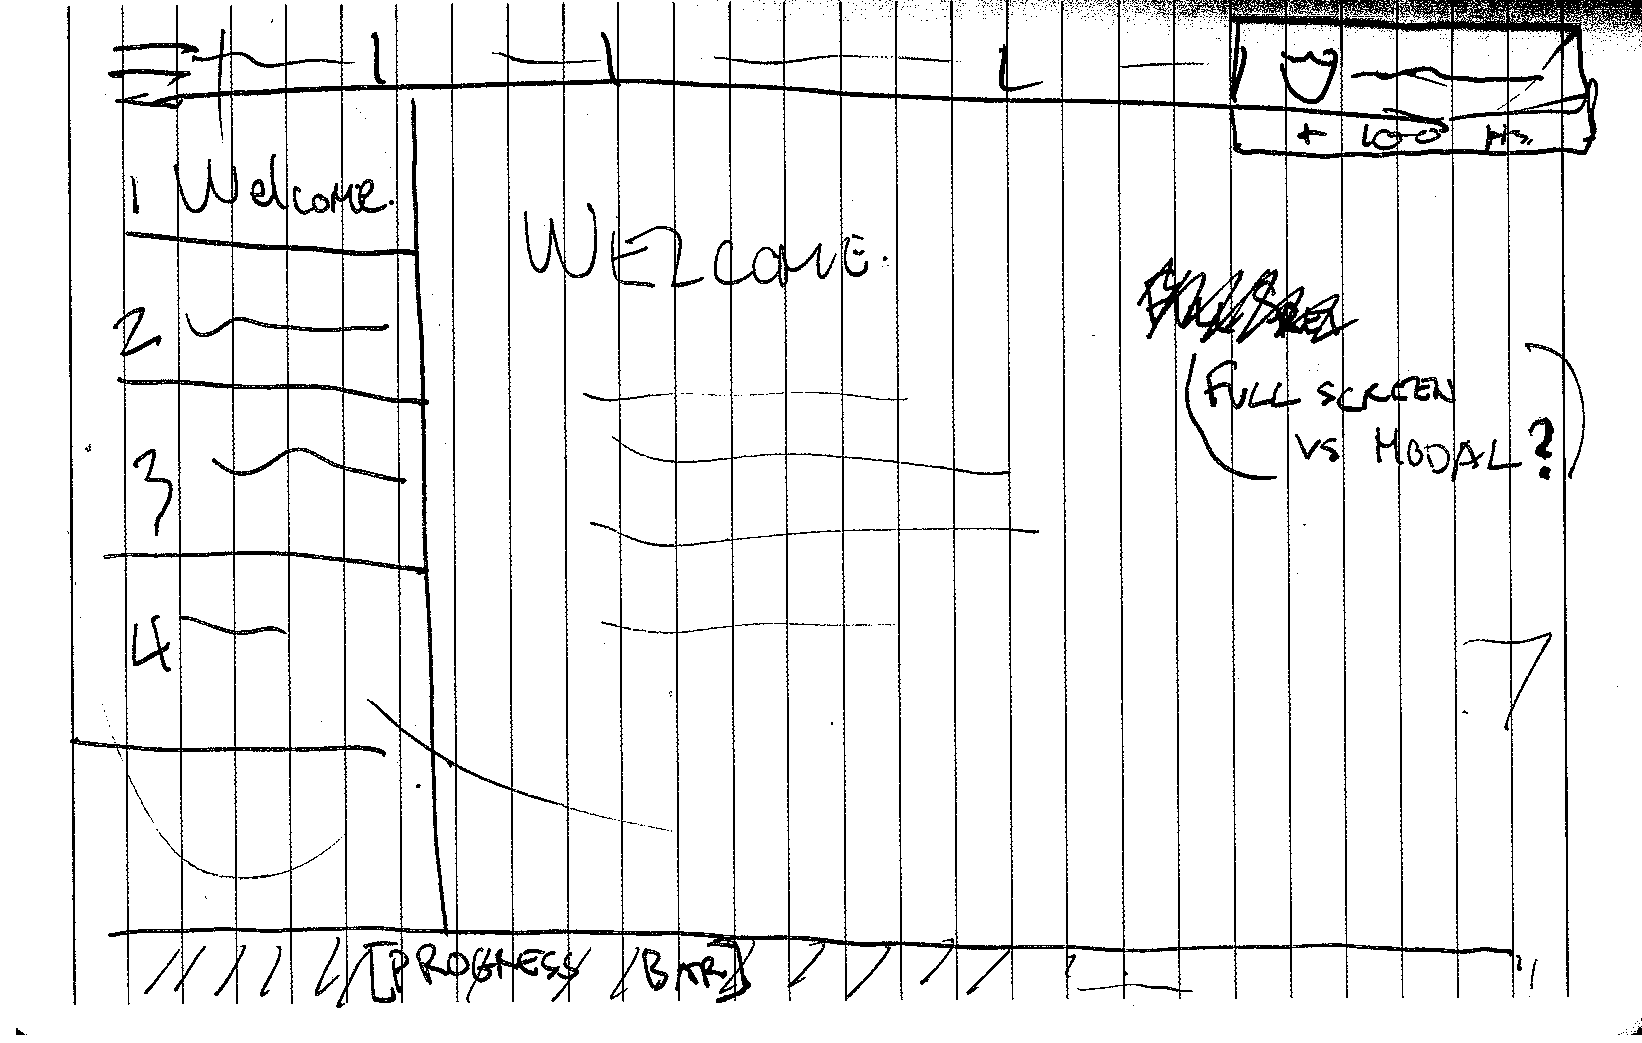 + 100
1 Welcome.
WELCOME.
2
(FULL SCREEN
VS MODAL?)
3
4
[PROGRESS BAR]